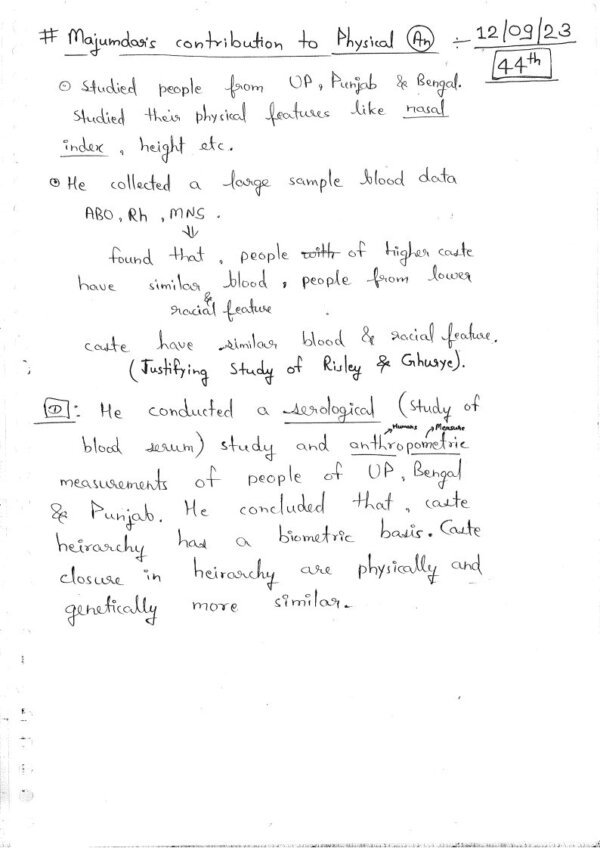 # Majumdar's contribution to Physical (An) :- 12/09/23
44th
⊙ Studied people from UP, Punjab & Bengal.
Studied their physical features like nasal
index, height etc.
⊙ He collected a large sample blood data
ABO, Rh, MNS.
⇓
found that, people with of higher caste
have similar blood, people from lower
& racial feature
caste have similar blood & racial feature.
(Justifying Study of Risley & Ghurye).
D: He conducted a serological (study of
Humans Measure
blood serum) study and anthropometric
measurements of people of UP, Bengal
& Punjab. He concluded that, caste
heirarchy has a biometric basis. Caste
closure in heirarchy are physically and
genetically more similar.